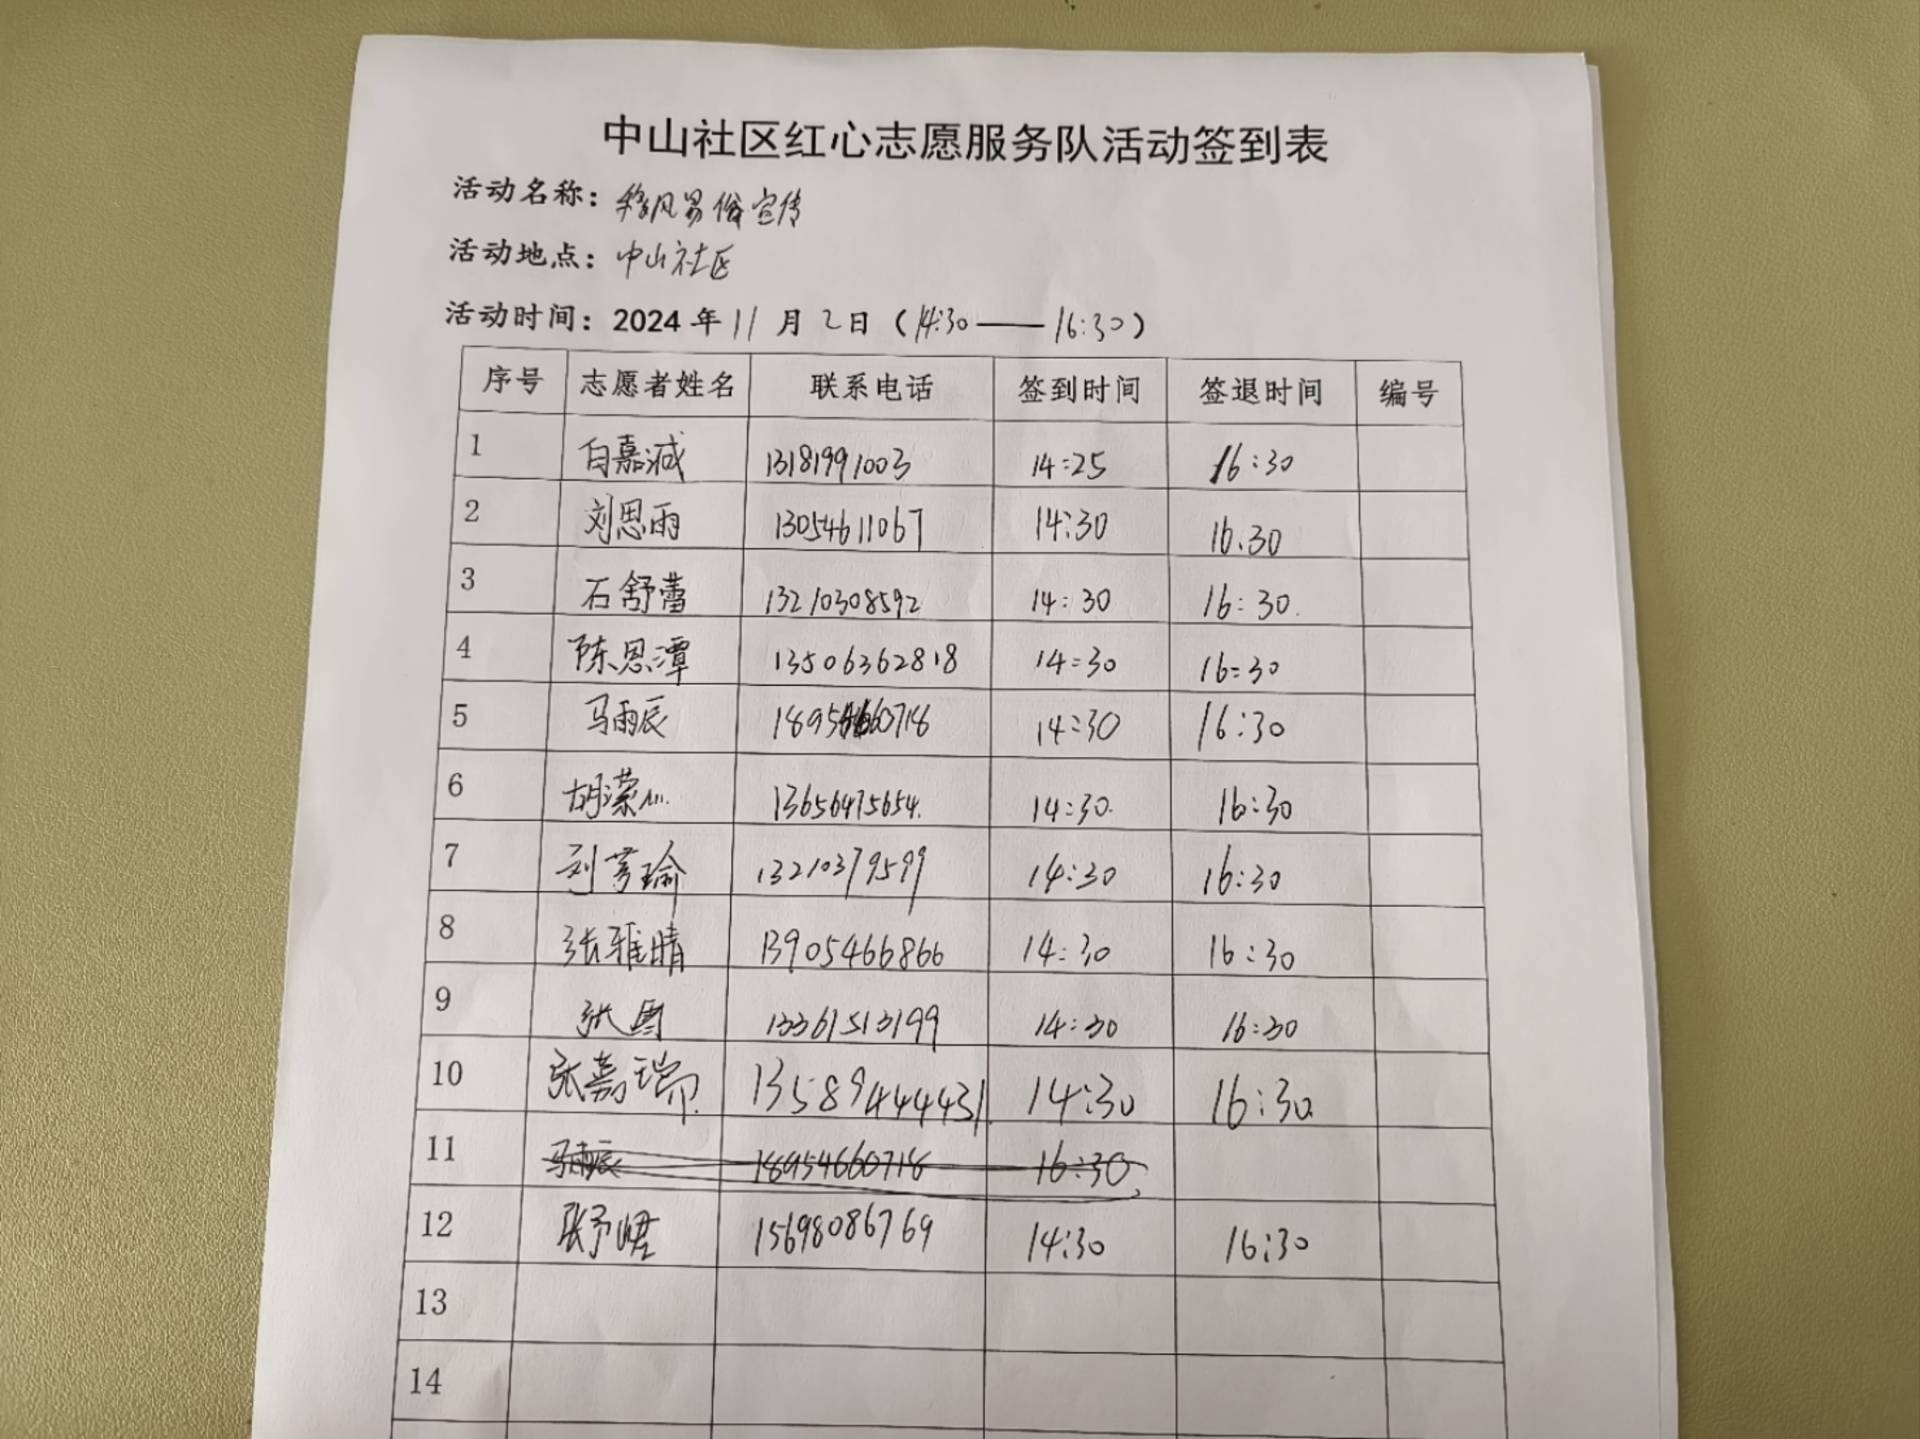 中山社区红心志愿服务队活动签到表
活动名称：移风易俗宣传
活动地点：中山社区
活动时间：2024年11月2日（14:30——16:30）
序号 志愿者姓名 联系电话 签到时间 签退时间 编号
1 白嘉诚 13181991003 14:25 16:30
2 刘思雨 13054611067 14:30 16.30
3 石舒蕾 13210308592 14:30 16:30.
4 陈恩潭 13506362818 14:30 16:30
5 马雨辰 18954660718 14:30 16:30
6 胡滢心 13656475654. 14:30. 16:30
7 刘芳瑜 13210379599 14:30 16:30
8 张雅晴 13905466866 14:30 16:30
9 张 13361513199 14:30 16:30
10 张嘉瑞 13589444431 14:30 16:30
11 马雨辰 18954660718 16:30
12 张予珺 15698086769 14:30 16:30
13
14